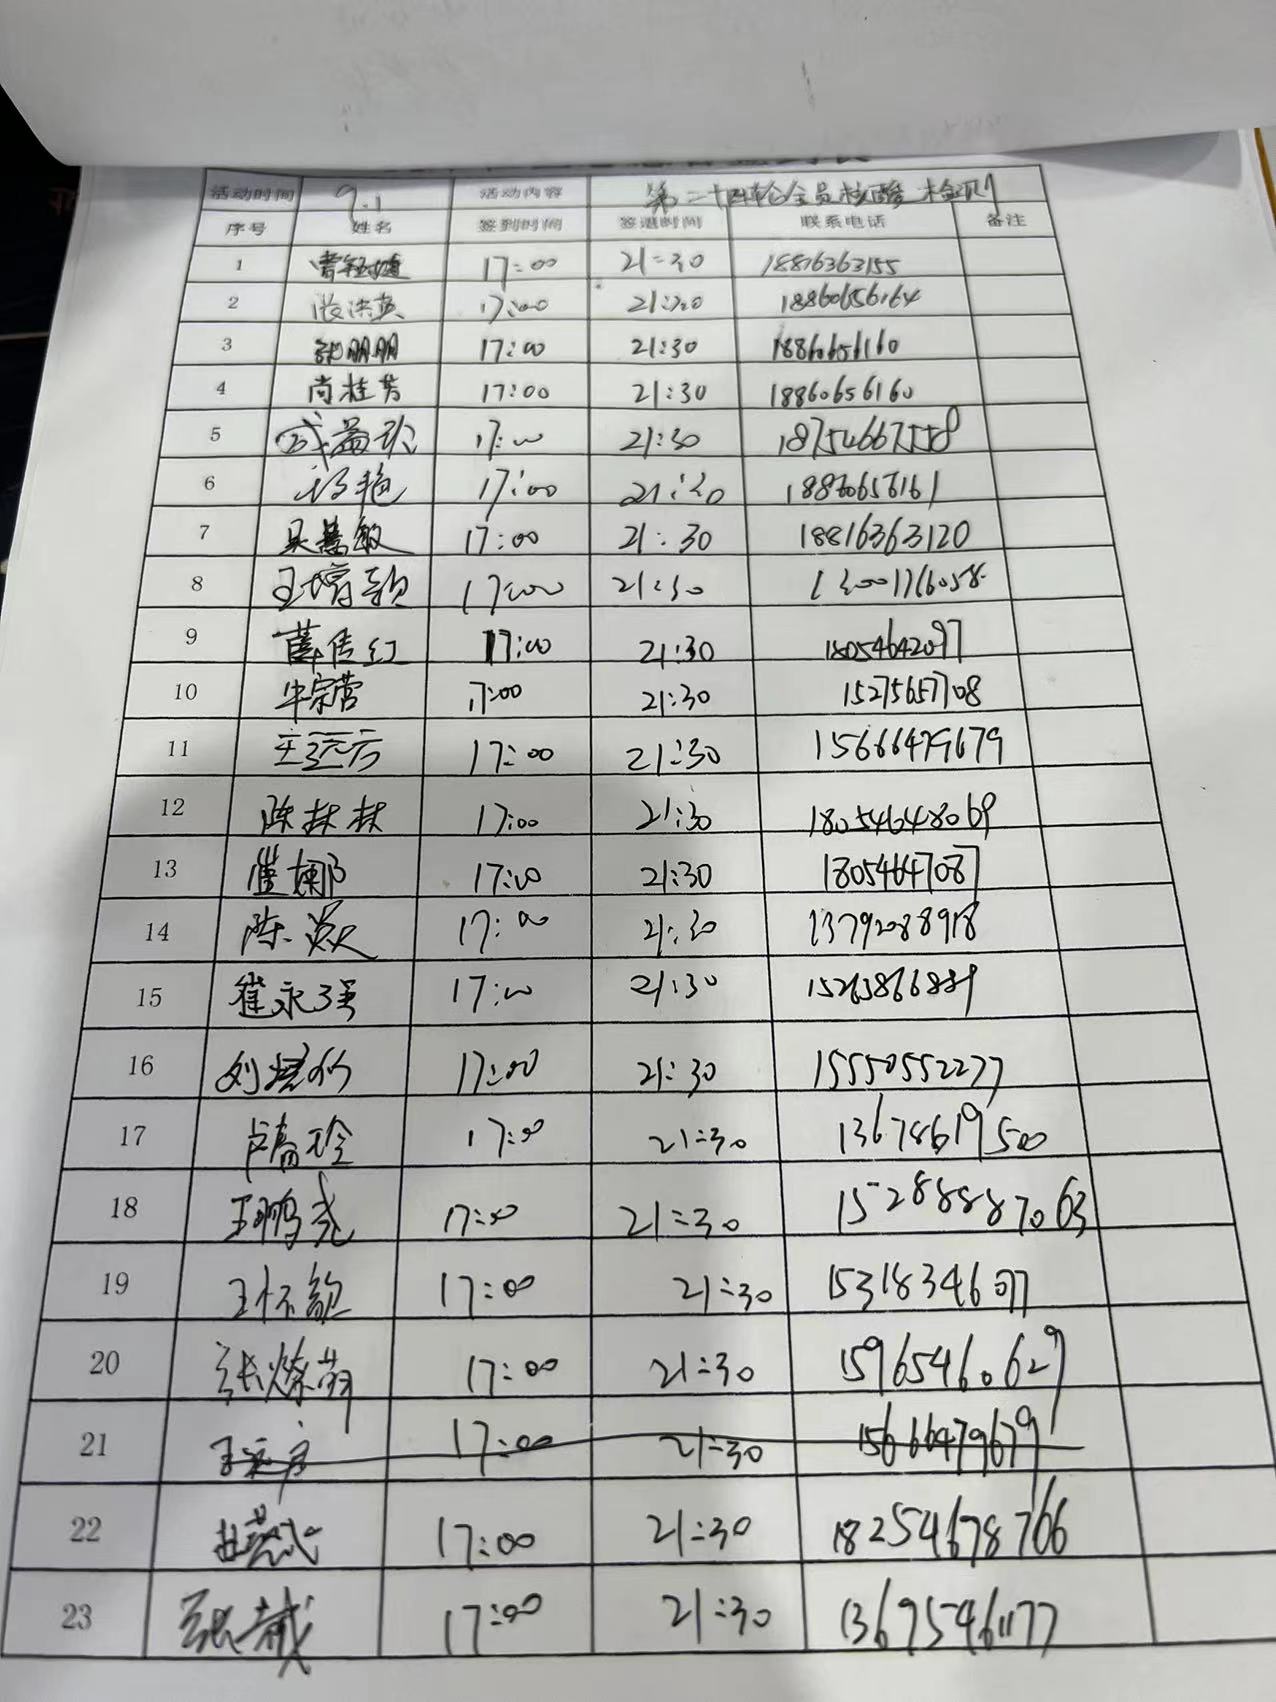 活动时间 9.1 活动内容 第二十四轮全员核酸检测
序号 姓名 签到时间 签退时间 联系电话 备注
1 17:00 21:30 18816363155
2 17:00 21:30 18860656164
3 张明明 17:00 21:30 18860656160
4 尚桂芳 17:00 21:30 18860656160
5 17:00 21:30 18754667558
6 17:00 21:30 18860656161
7 吴慧敏 17:00 21:30 18816363120
8 17:00 21:30
9 薛传红 17:00 21:30 18054642097
10 牛宗营 17:00 21:30 15275657708
11 王远方 17:00 21:30 15666479679
12 陈林林 17:00 21:30 18054648069
13 董娜 17:00 21:30 18054647087
14 陈焱 17:00 21:30 13792088918
15 崔永强 17:00 21:30 15265866889
16 17:00 21:30 15550552277
17 17:00 21:30 13678619500
18 王鹏尧 17:00 21:30 15288887063
19 王怀敏 17:00 21:30 15318346077
20 张燎萌 17:00 21:30 15965460629
21 王远方 17:00 21:30 15666479679
22 17:00 21:30 18254678766
23 17:00 21:30 13675461177